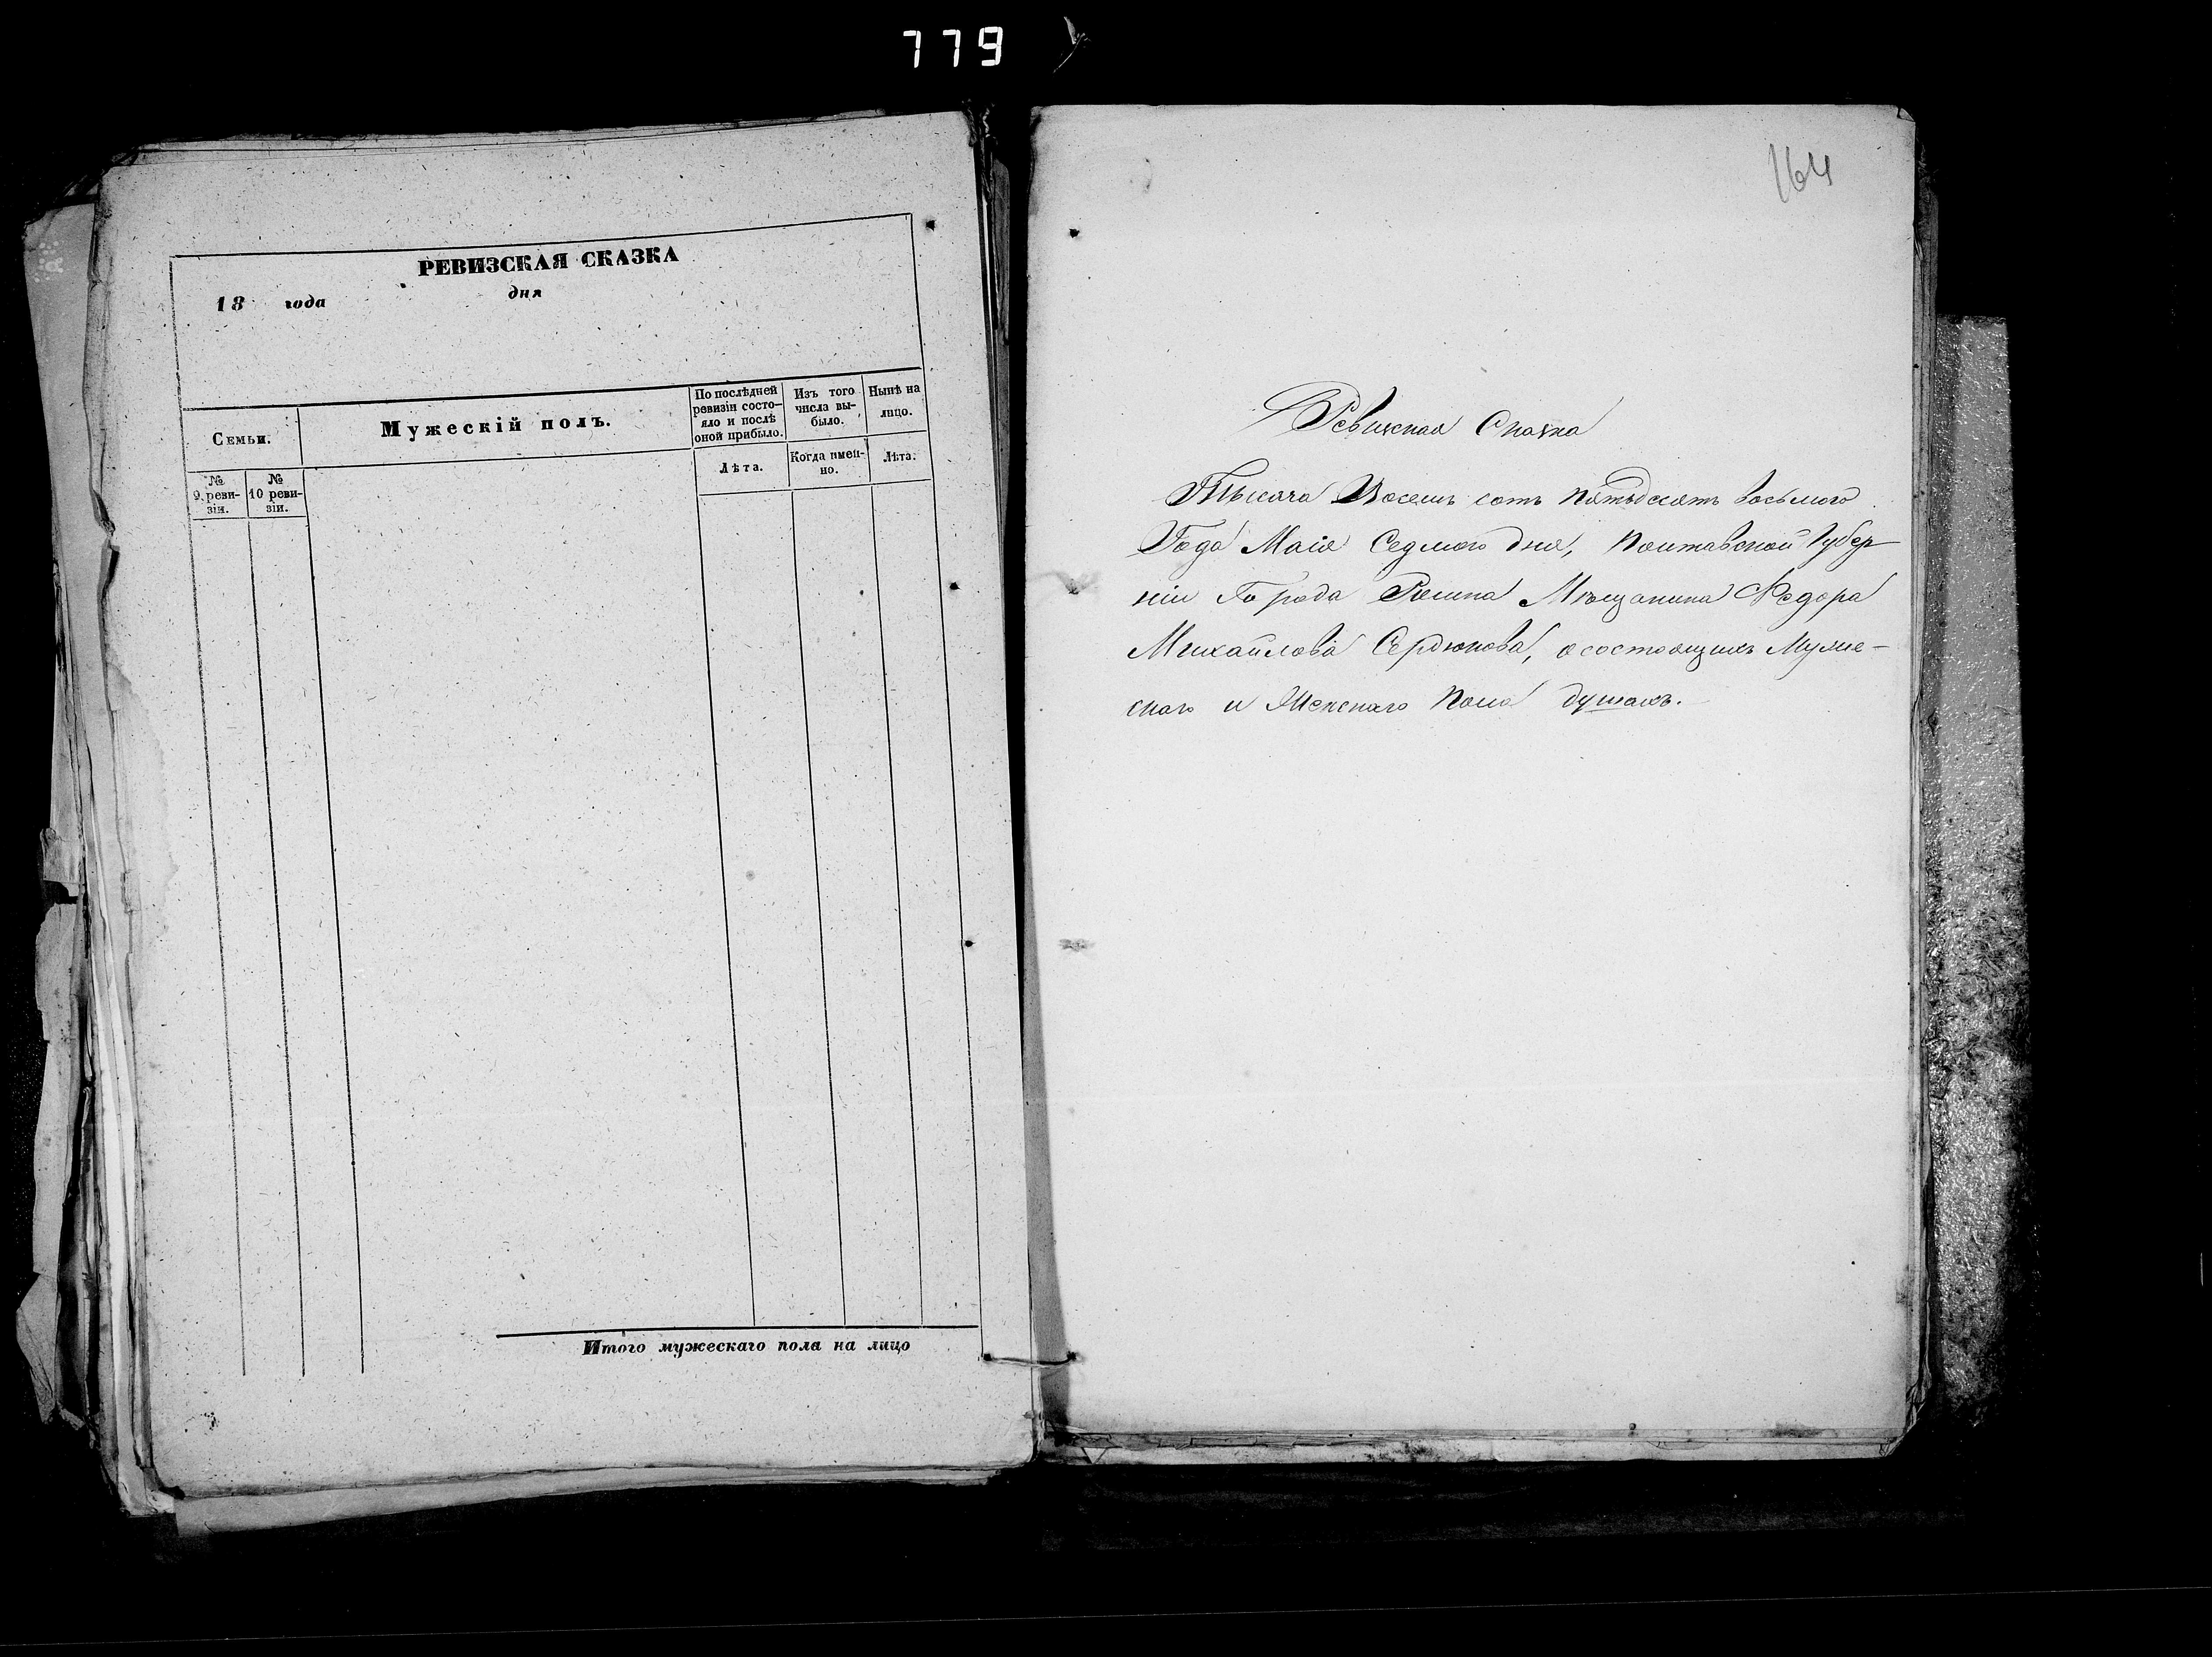 779
РЕВИЗСКАЯ СКАЗКА
18 года дня
Семьи.
Мужескій полъ.
По послѣдней ревизіи состо-
яло и послѣ
оной прибыло.
Изъ того
числа вы-
было.
Нынѣ на
лицо.
№
9 реви-
зіи.
№
10 реви-
зіи.
Лѣта.
Когда имен-
но.
Лѣта.
Итого мужескаго пола на лицо
164
Ревизская Сказка
Тысяча Восемь сотъ пятьдесятъ восьмого
Года Маія Седмого дня, Полтавской Губер
ніи Города Ромна Мѣщанина Федора
Михайлова Сердюкова, о состоящихъ Муже-
скаго и Женскаго Пола душахъ.